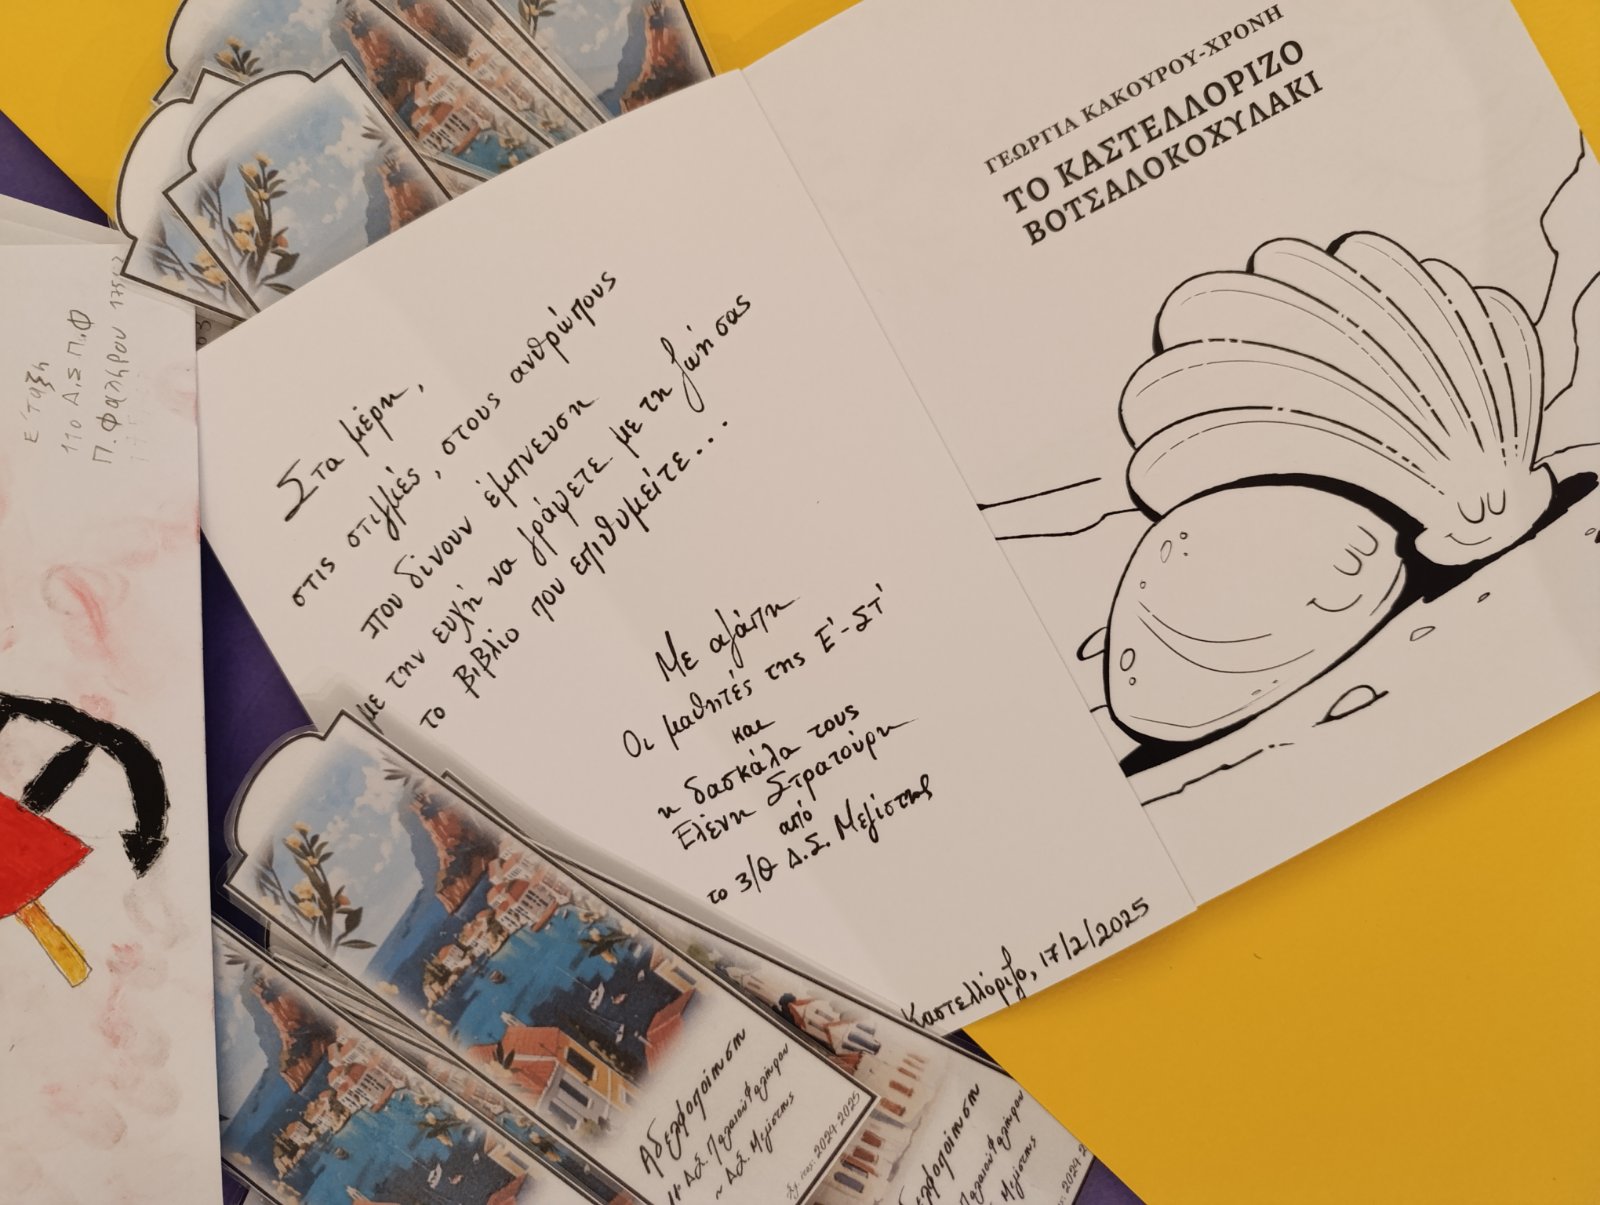 ΓΕΩΡΓΙΑ ΚΑΚΟΥΡΟΥ-ΧΡΟΝΗ
ΤΟ ΚΑΣΤΕΛΛΟΡΙΖΟ
ΒΟΤΣΑΛΟΚΟΧΥΛΑΚΙ
Στα μέρη,
στις στιγμές, στους ανθρώπους
που δίνουν έμπνευση
με την ευχή να γράψετε με τη ζωή σας
το βιβλίο που επιθυμείτε...
Με αγάπη
Οι μαθητές της Ε'-Στ'
και
η δασκάλα τους
Ελένη Στρατούρη
από
το 3/Θ Δ.Σ. Μεγίστης
Καστελλόριζο, 17/2/2025
Ε' τάξη
11ο Δ.Σ Π.Φ
Π. Φαλήρου 175
Αδελφοποίηση
11ο Δ.Σ. Παλαιού Φαλήρου
~ Δ.Σ. Μεγίστης
Σχ. έτος: 2024-2025
δελφοποίηση
Παλαιού Φαλήρου
Μεγίστης
2024-2